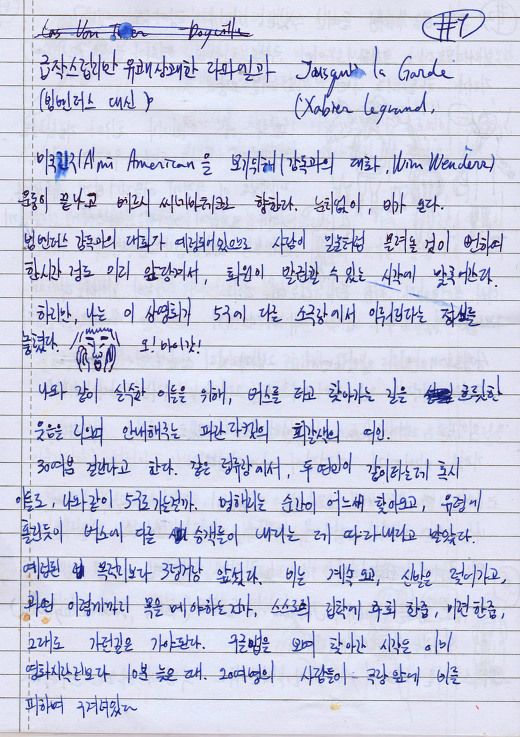 #1
급작스럽지만 유쾌상쾌한 라파일과 Jousquin la Garde
(빔벤더스 대신) (Xabier Legrand,
미국친구(Ami American을 보기위해 (감독과의 대화, Wim Wenders)
운동이 끝나고 베르시 씨네마테크로 향한다. 눈치없이, 비가 온다.
빔벤더스 감독과의 대화가 예정되어있으므로 사람이 밀물처럼 몰려올 것이 뻔하여
한시간 정도 미리 앞당겨서, 회원이 발권할 수 있는 시각에 맞춰간다.
하지만, 나는 이 상영회가 5구에 다른 소극장에서 이뤄진다는 정보를
놓쳤다. 오! 마이갓!
나와 같이 실수한 이들을 위해, 버스를 타고 찾아가는 길을 흐릿한
웃음을 지으며 안내해주는 파란자켓의 회갈색의 여인.
30여분 걸린다고 한다. 같은 정류장에서, 두 연인이 같이타는데 혹시
이들도, 나와같이 5구로 가는걸까. 멍해지는 순간이 어느새 찾아오고, 유령에
홀린듯이 버스에 다른 승객들이 내리는 데 따라내리고 말았다.
예정된 목적지보다 3정거장 앞섰다. 비는 계속 오고, 신발은 젖어가고,
과연 이렇게까지 목을 메야하는걸까, 스스로의 입학에 후회 한줌, 미련 한줌,
그대로 가던길은 가야된다. 구글맵을 보며 찾아간 시각은 이미
영화시작시간보다 10분 늦은 때. 20여명의 사람들이 극장앞에 비를
피하며 구려녀있다